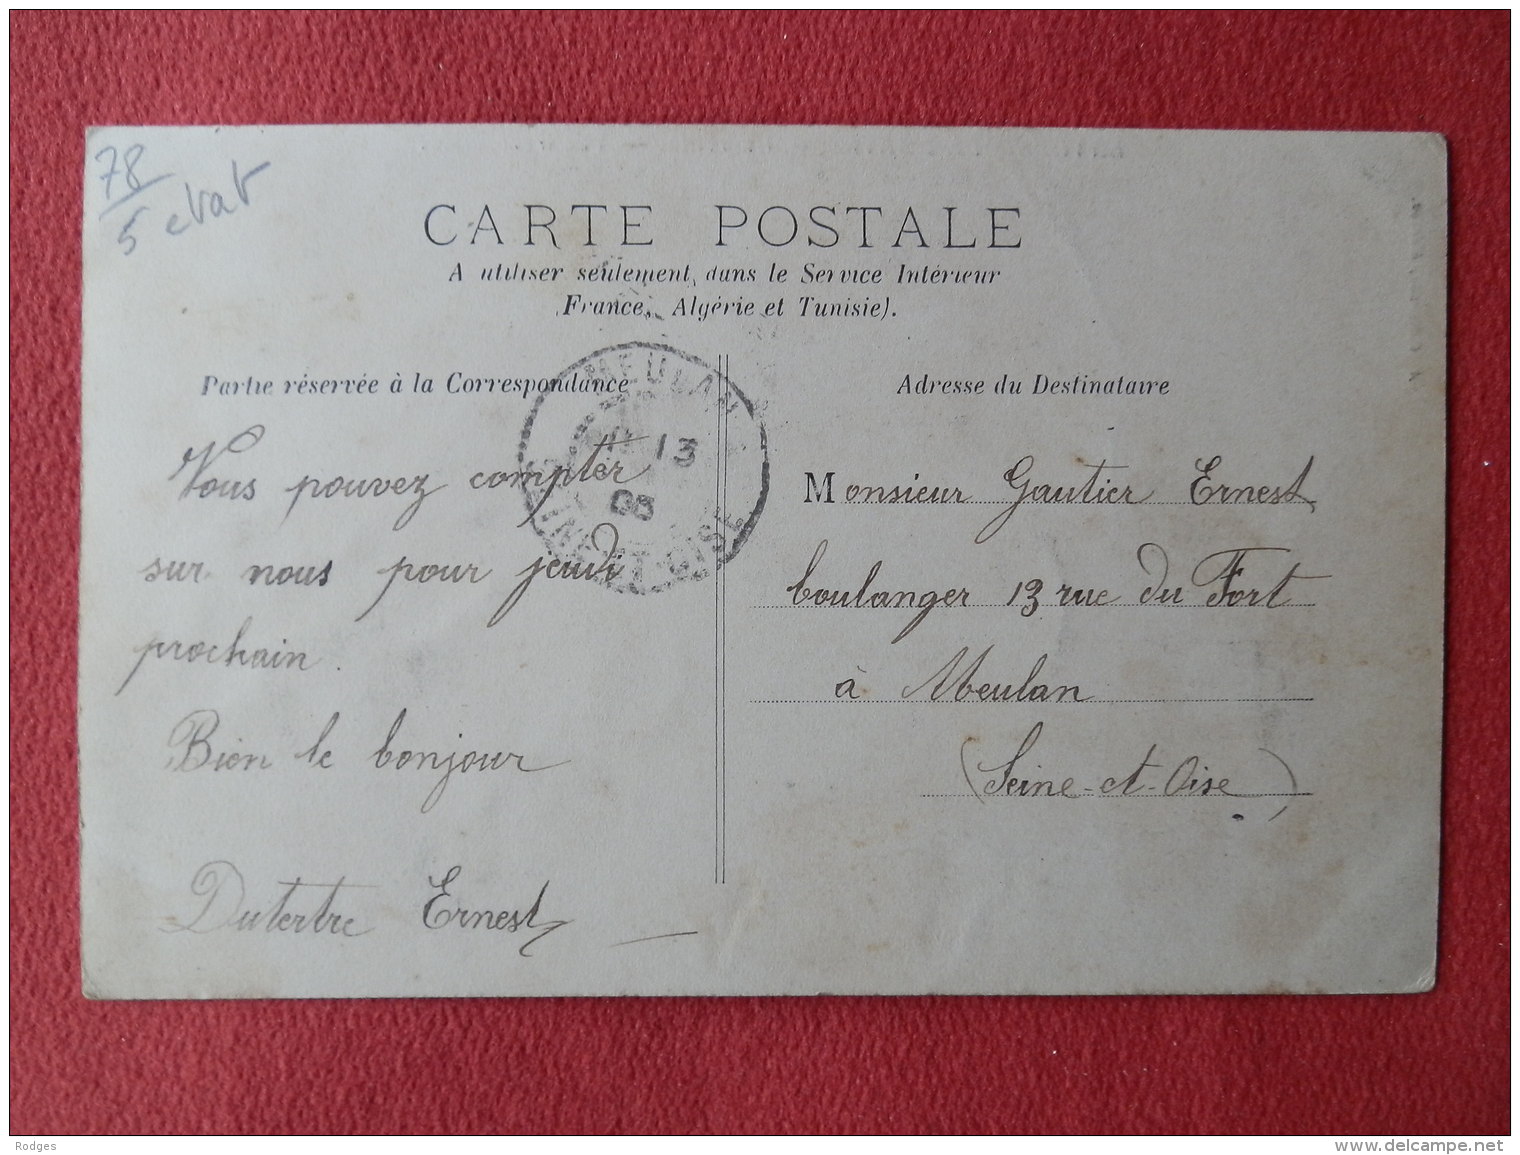 78
5 etat
CARTE POSTALE
A utiliser seulement dans le Service Intérieur
(France, Algérie et Tunisie).
Partie réservée à la Correspondance
Adresse du Destinataire
MEULAN
13
SEINE-ET-OISE
Vous pouvez compter
sur nous pour jeudi
prochain.
Bien le bonjour
Dutertre Ernest
Monsieur Gautier Ernest
boulanger 13 rue du Fort
à Meulan
(Seine-et-Oise)
Rodges
www.delcampe.net